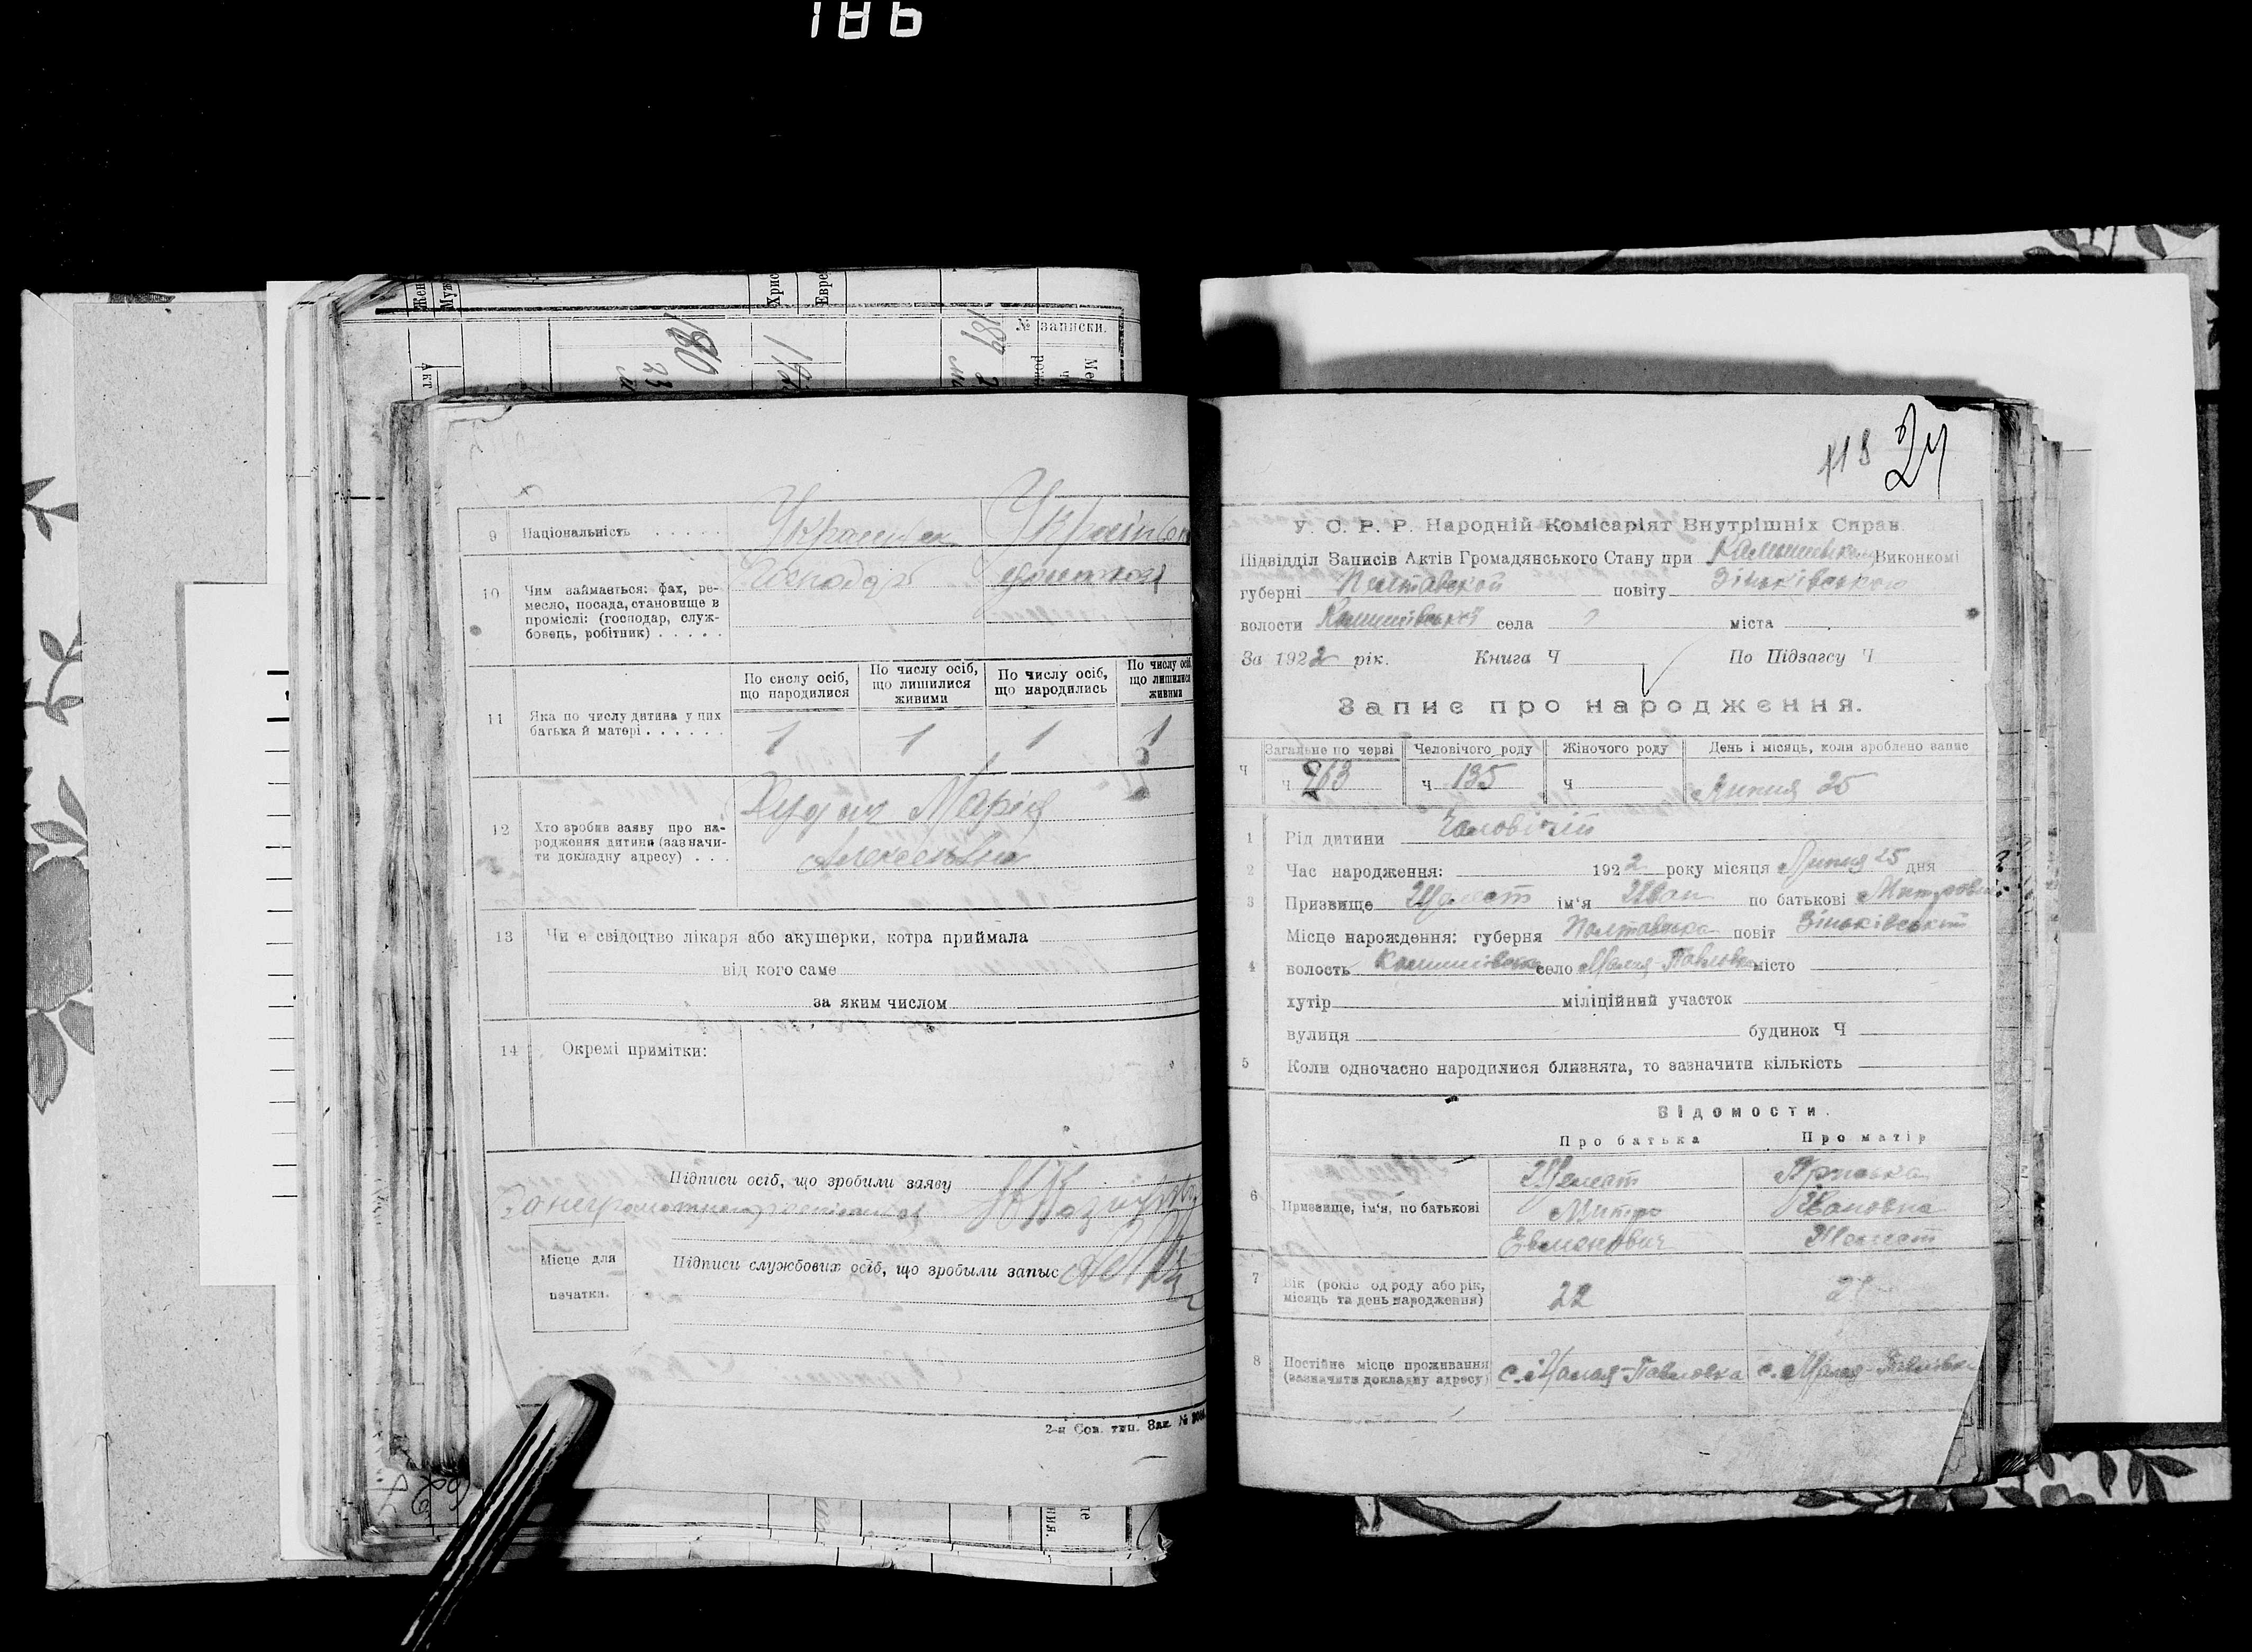 186
Жен
Муж
Хрис
Евре
№ записки.
180
189
9 Національність . . . . .
Украинец
10 Чим займається: фах, ре-
месло, посада, становище в
проміслі: (господар, служ-
бовець, робітник) . . . . .
Господар
11 Яка по числу дитина у цих
батька й матері . . . . . .
По сислу осіб,
що народилися
По числу осіб,
що лишилися
живими
По числу осіб,
що народились
По числу осіб,
що лишилися
живими
1 1 1 1
12 Хто зробив заяву про на-
родження дитини (зазначи-
ти докладну адресу) . . .
Марія
Алексеевна
13 Чи е свідоцтво лікаря або акушерки, котра приймала
від кого саме
за яким числом
14 Окремі примітки:
Підписи осіб, що зробили заяву
Місце для
печатки.
Підписи службових осіб, що зробыли запыс
2-я Сов. тип. Зак. №
118 24
У. С. Р. Р. Народній Комісаріят Внутрішніх Справ.
Підвідділ Записів Актів Громадянського Стану при Виконкомі
губерні Полтавской повіту Зіньківського
волости Камишівської села міста
За 1922 рік. Книга Ч По Підзагсу Ч
Запис про народження.
Загальне по черві Человічого роду Жіночого роду День і місяць, коли зроблено запис
Ч ч 263 ч 135 ч Липня 25
1 Рід дитини Чоловічій
2 Час народження: 1922 року місяця Липня 25 дня
3 Призвище Шелест ім'я Иван по батькові Митрович
Місце нарождення: губерня Полтавська повіт Зіньківський
4 волость Камишівська село Малая-Павловка місто
хутір міліційний участок
вулиця будинок Ч
5 Коли одночасно народилися близнята, то зазначити кількість
Відомости.
Про батька Про матір
6 Призвище, ім'я, по батькові
Шелест
Митро
Евменович
Ивановна
Шелест
7 Вік (років од роду або рік,
місяць та день народження)
22
8 Постійне місце проживання
(зазначити докладну адресу)
с. Малая-Павловка с. Малая-Павловка